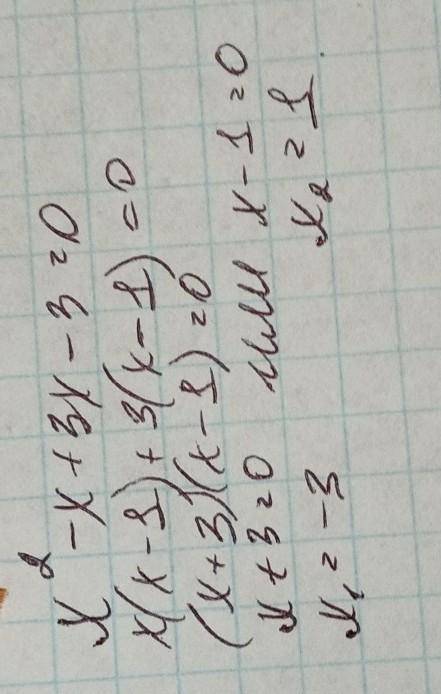 x² - x + 3x - 3 = 0
x(x - 1) + 3(x - 1) = 0
(x + 3)(x - 1) = 0
x + 3 = 0 или x - 1 = 0
x₁ = -3 x₂ = 1